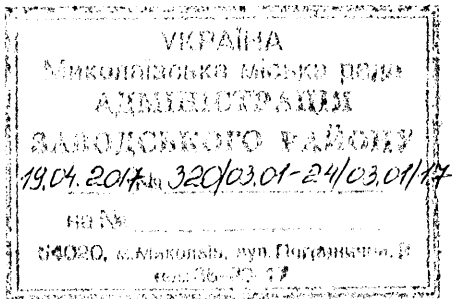 УКРАЇНА
Миколаївська міська рада
АДМІНІСТРАЦІЯ
ЗАВОДСЬКОГО РАЙОНУ
19.04.2017 № 320/03.01-24/03.01/17
на №
54020, м.Миколаїв, вул.